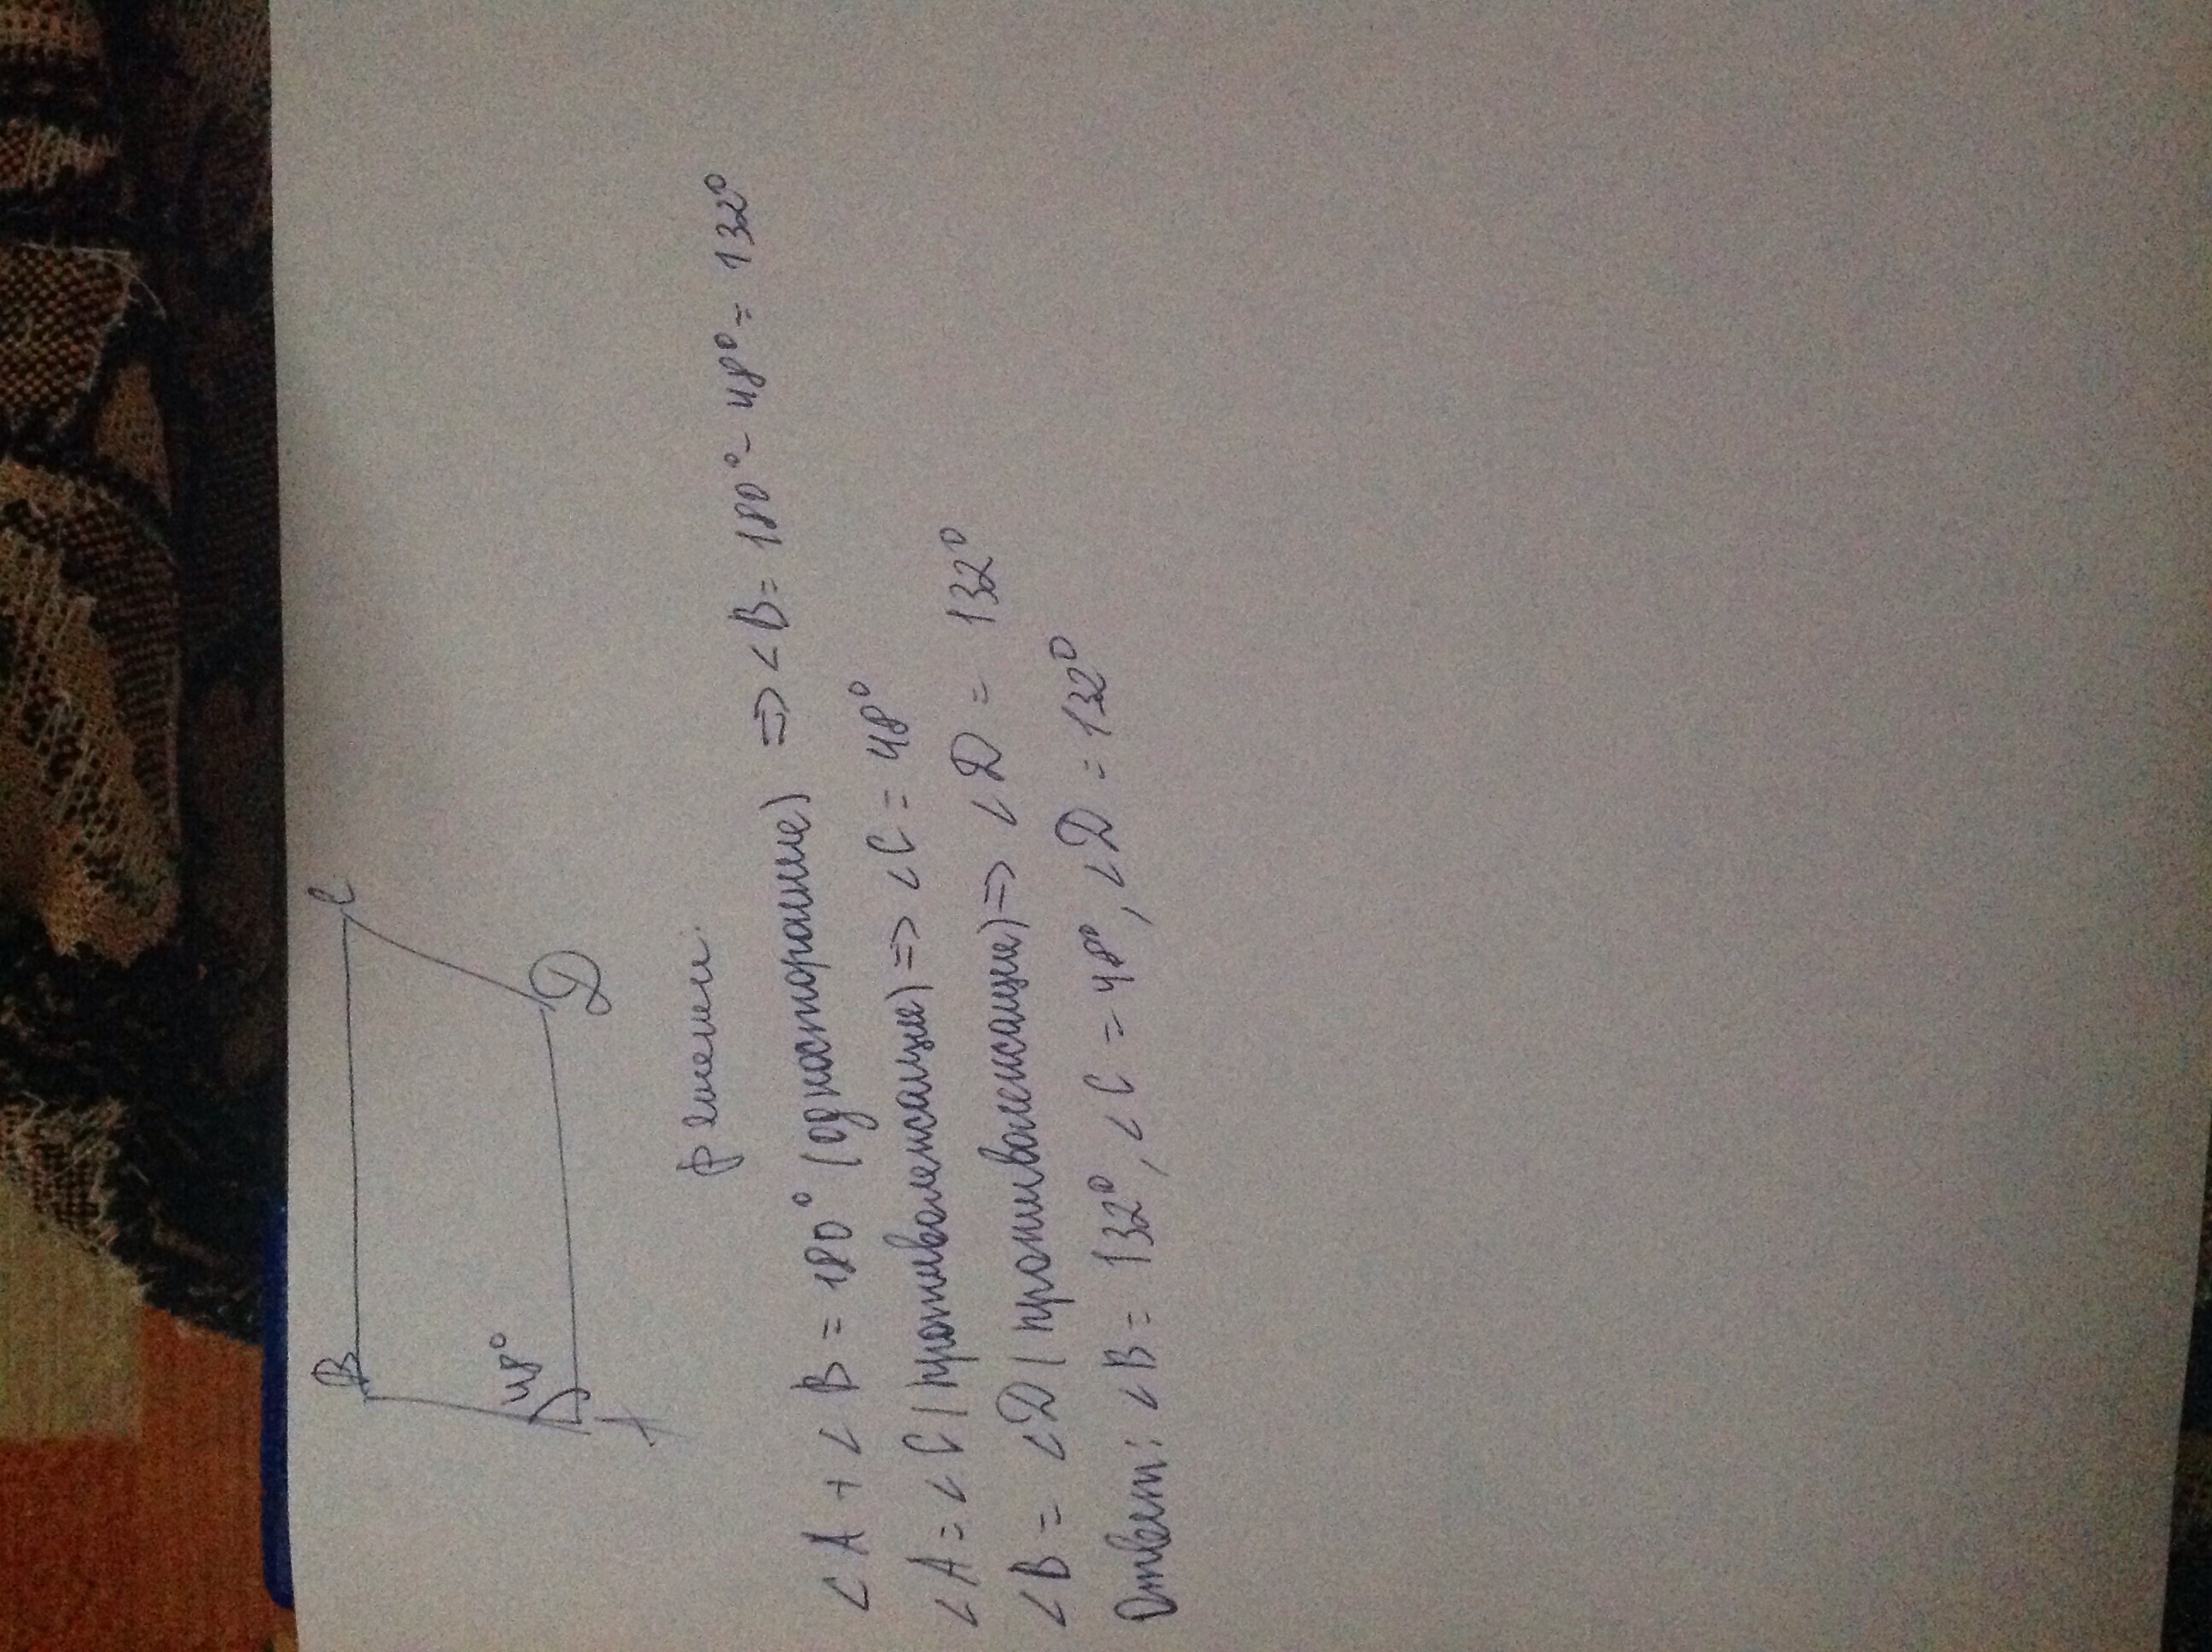 B C
48°
A D
решение:
∠A + ∠B = 180° (односторонние) => ∠B = 180° - 48° = 132°
∠A = ∠C (противолежащие) => ∠C = 48°
∠B = ∠D (противолежащие) => ∠D = 132°
Ответ: ∠B = 132°, ∠C = 48°, ∠D = 132°